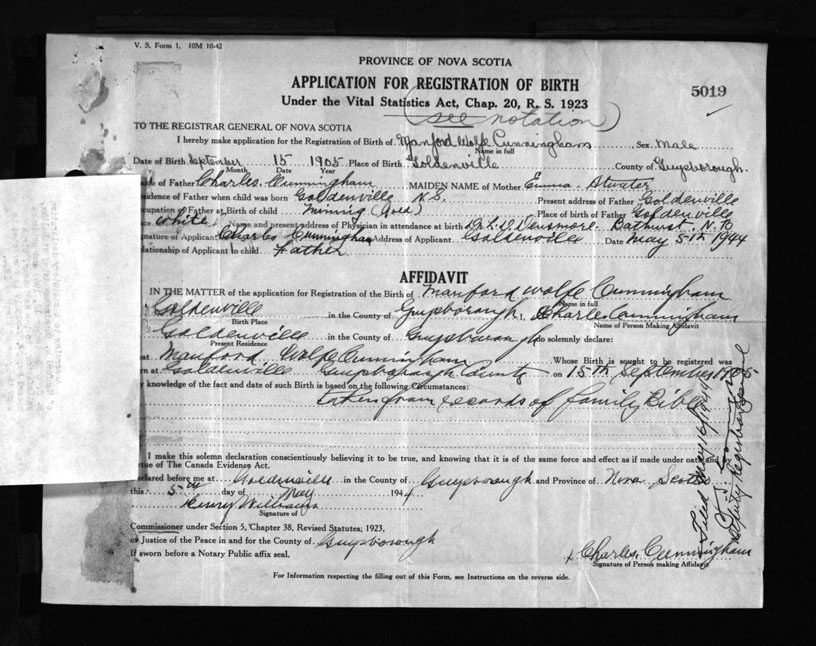 V. S. Form 1. 10M 10-42
PROVINCE OF NOVA SCOTIA
APPLICATION FOR REGISTRATION OF BIRTH
5019
Under the Vital Statistics Act, Chap. 20, R. S. 1923
(see notation)
TO THE REGISTRAR GENERAL OF NOVA SCOTIA
I hereby make application for the Registration of Birth of Manford Wolfe Cunningham Sex Male
Name in full
Date of Birth September 15 1905 Place of Birth Goldenville County of Guysborough
Month Date Year
of Father Charles Cunningham MAIDEN NAME of Mother Emma Atwater
sidence of Father when child was born Goldenville N.S. Present address of Father Goldenville
ccupation of Father at Birth of child mining (Gold) Place of birth of Father Goldenville
White Name and present address of Physician in attendance at birth Dr. L. D. Densmore Bathurst. N.B
nature of Applicant Charles Cunningham Address of Applicant Goldenville Date May 5th 1944
lationship of Applicant to child Father
AFFIDAVIT
IN THE MATTER of the application for Registration of the Birth of Manford Wolfe Cunningham
Name in full
Goldenville in the County of Guysborough I, Charles Cunningham
Birth Place Name of Person Making Affidavit
Goldenville in the County of Guysborough do solemnly declare:
Present Residence
at Manford Wolfe Cunningham Whose Birth is sought to be registered was
rn at Goldenville Guysborough County on 15th September 1905
knowledge of the fact and date of such Birth is based on the following Circumstances:
taken from records of family Bible
I make this solemn declaration conscientiously believing it to be true, and knowing that it is of the same force and effect as if made under oath and
rtue of The Canada Evidence Act.
clared before me at Goldenville in the County of Guysborough and Province of Nova Scotia
this 5th day of May 1944
Henry Williams
Signature of
Commissioner under Section 5, Chapter 38, Revised Statutes, 1923,
or Justice of the Peace in and for the County of Guysborough
If sworn before a Notary Public affix seal.
Charles Cunningham
Signature of Person making Affidavit
For Information respecting the filling out of this Form, see Instructions on the reverse side.
Filed May 16/1944
Deputy Registrar General